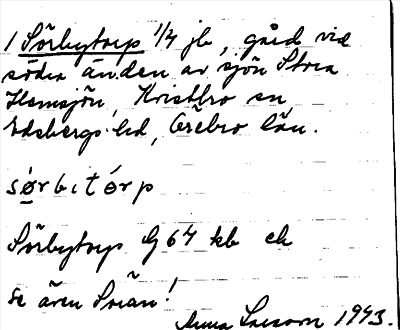 1 Sörbytorp 1/4 jb, gård vid
södra änden av sjön Stora
Hemsjön, Kvistbro sn
Edsbergs hd, Örebro län.
sørbitórp
Sörbytorp G 64 kb ek
se även Sörån!
Anna 1943.